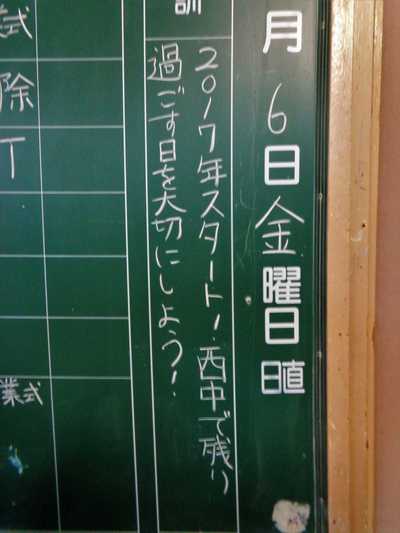 月6日金曜日
日直
訓
2017年スタート!西中で残り
過ごす日を大切にしよう!
式
除
T
業式